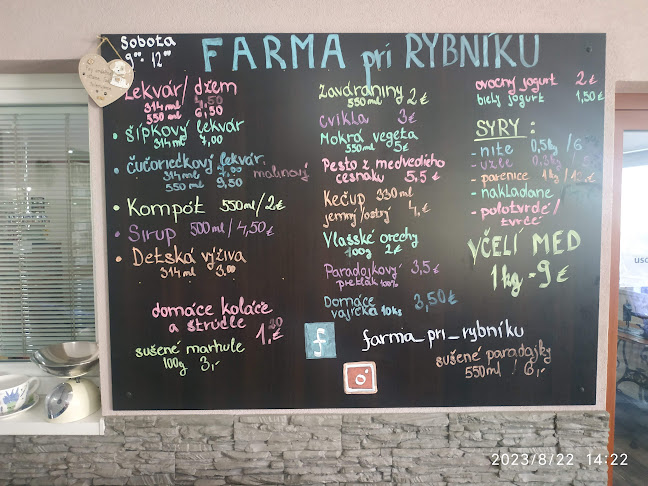 Sobota
9:00 - 12:00
FARMA pri RYBNÍKU
Lekvár/ džem
314 ml 4,50
550 ml 6,50
• Šípkový lekvár
314 ml 7,00
• Čučoriedkový lekvár, malinový
314 ml 7,00
550 ml 9,50
• Kompót 550ml/2€
• Sirup 500ml/4,50€
• Detská výživa
314 ml 3,00
domáce koláče
a štrúdle 1,20
sušené marhule
100g 3,-
Zaváraniny
550 ml 2€
Cvikla 3€
Mokrá vegeta
550 ml 5€
Pesto z medvedieho
cesnaku 5,5€
Kečup 330ml
jemný/ostrý 4,€
Vlašské orechy
100g 2€
Paradajkový 3,5€
pretlak 100%
Domáce
vajíčka 10ks 3,50€
ovocný jogurt 2€
biely jogurt 1,50€
SYRY :
- nite 0,5kg/6
- uzle
- parenice 1kg/
- nakladané
- polotvrdé/
tvrdé
VČELÍ MED
1kg - 9€
f
farma_pri_rybníku
sušené paradajky
550ml / 6,-
2023/8/22 14:22